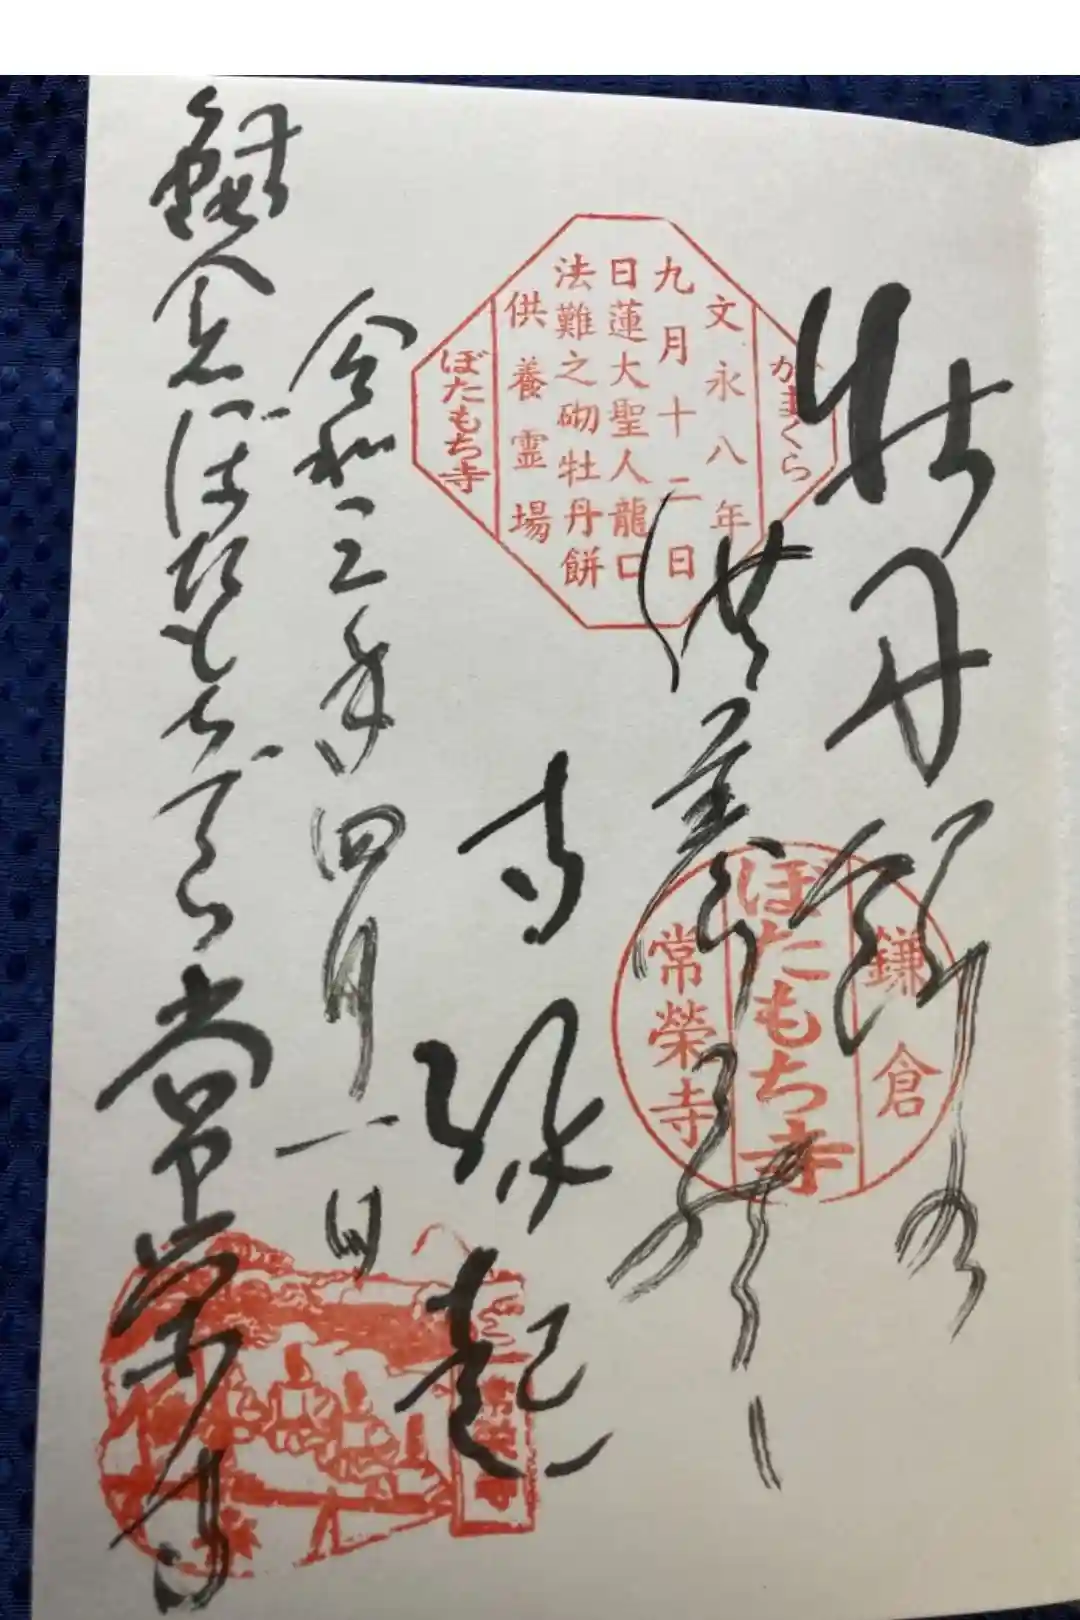 牡丹餅
供養
寺縁起
令和三年四月一日
鎌倉ぼたもちでら常栄寺
かまくら
文永八年
九月十二日
日蓮大聖人龍口
法難之砌牡丹餅
供養霊場
ぼたもち寺
鎌倉
ぼたもち寺
常榮寺